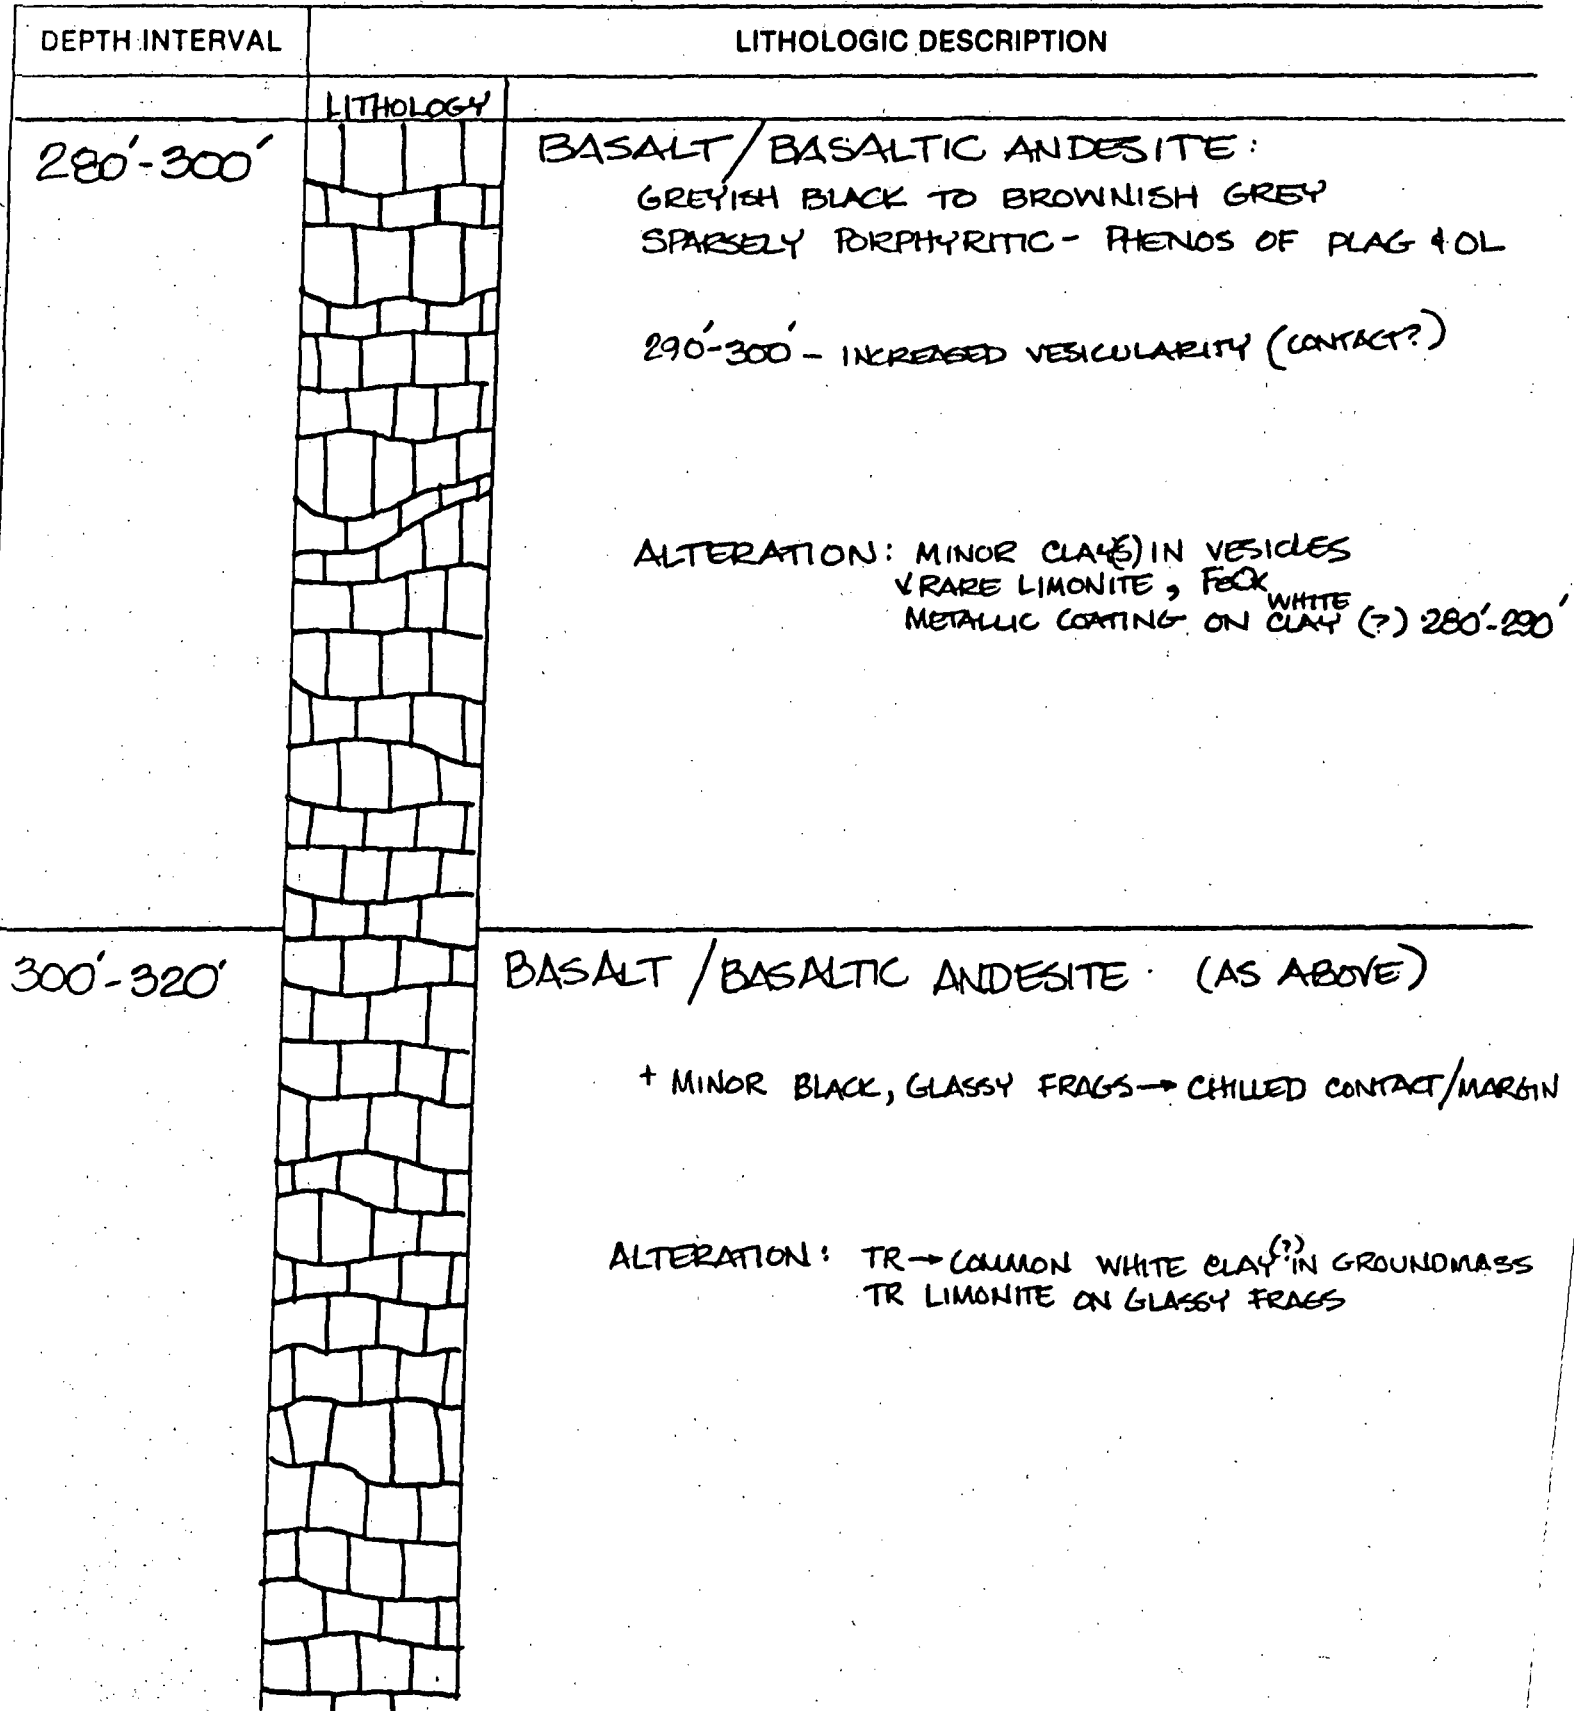 DEPTH INTERVAL LITHOLOGIC DESCRIPTION
LITHOLOGY
280'-300' BASALT/BASALTIC ANDESITE:
GREYISH BLACK TO BROWNISH GREY
SPARSELY PORPHYRITIC - PHENOS OF PLAG & OL
290'-300' - INCREASED VESICULARITY (CONTACT?)
ALTERATION: MINOR CLAY(S) IN VESICLES
V RARE LIMONITE, FeOx
METALLIC COATING ON WHITE CLAY (?) 280'-290'
300'-320' BASALT/BASALTIC ANDESITE. (AS ABOVE)
+ MINOR BLACK, GLASSY FRAGS → CHILLED CONTACT/MARGIN
ALTERATION: TR → COMMON WHITE CLAY (?) IN GROUNDMASS
TR LIMONITE ON GLASSY FRAGS